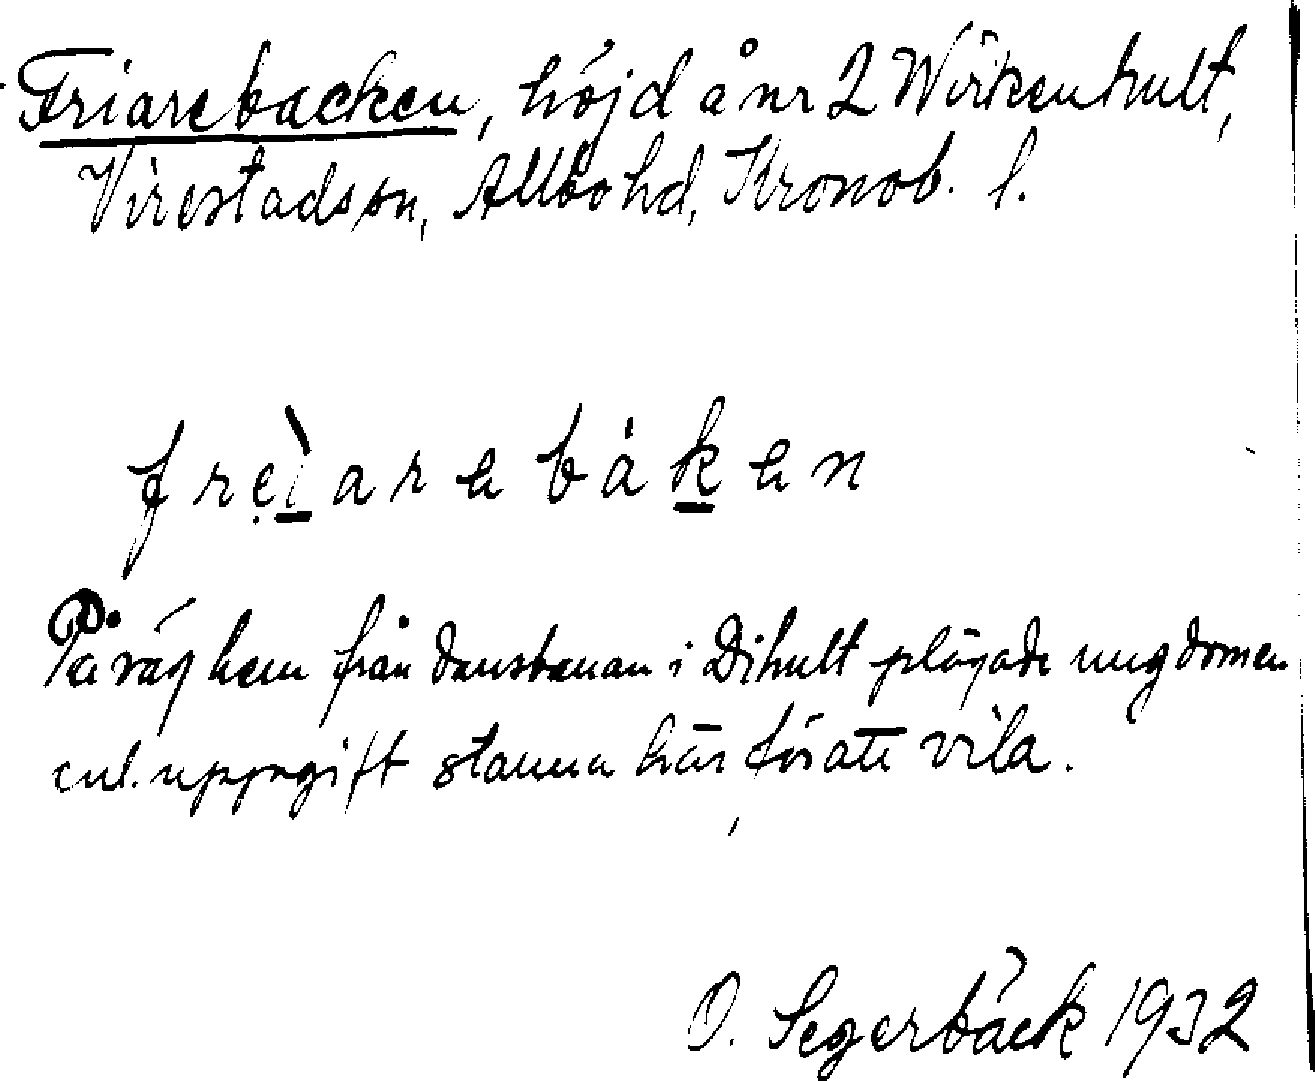 Friarebacken, höjd å nr 2 Wirkenhult,
Virestads sn, Allbo hd, Kronob. l.
frẹìarebaken
På väg hem från dansbanan i Dihult plägade ungdomen
enl. uppgift stanna här för att vila.
O. Segerbäck 1932